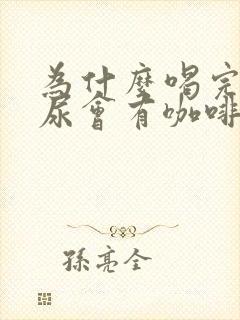 為什麼喝完
尿會有咖啡
孫亮全